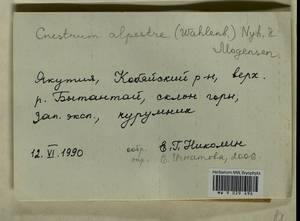 Cnestrum alpestre (Wahlenb.) Nyh. &
Mogensen.
Якутия, Кобяйский р-н, верх.
р. Бытантай, склон горы,
зап. эксп., курумник
12. VI. 1990
собр. Е.П. Николин
опр. Е. Игнатова, 2006
Herbarium MW, Bryophyta